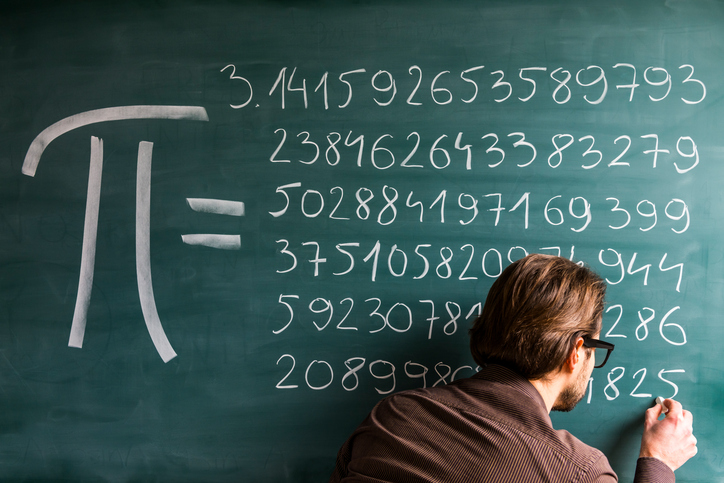 π = 3.141592653589793
238462643383279
502884197169399
375105820 944
5923078 286
20899 825